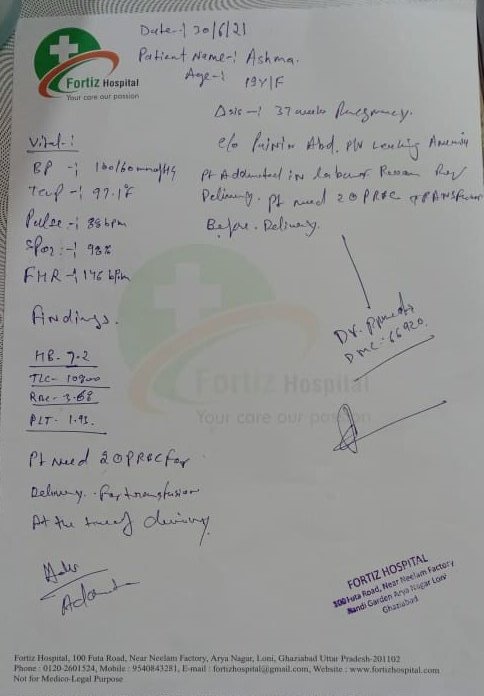 Fortiz Hospital
Your care our passion
Date -: 30/6/21
Patient Name -: Ashma.
Age -: 19Y/F
Dsis -: 37 weeks Pregnancy.
c/o Pain in Abd. P/V Leaking Anemia
Pt Addmited in labour Room For
Delivery. Pt need 2 PRBC TRANSfusion
Before. Delivery.
Vital :
BP -: 100/60 mmHg
Temp -: 97.1°F
Pulse -: 88 bpm
SPO2 -: 98%
FHR -: 146 b/m
Findings.
HB - 7.2
TLC - 10800
RBC - 3.68
PLT - 1.93.
Dr.
DMC - 66920.
Fortiz Hospital
Your care our passion
Pt need 2 PRBC for
Delivery. For transfusion
At the time of delivery
FORTIZ HOSPITAL
100 Futa Road, Near Neelam Factory
Nandi Garden Arya Nagar Loni
Ghaziabad
Fortiz Hospital, 100 Futa Road, Near Neelam Factory, Arya Nagar, Loni, Ghaziabad Uttar Pradesh-201102
Phone : 0120 2601524, Mobile : 9540843281, E-mail : fortizhospital@gmail.com, Website : www.fortizhospital.com
Not for Medico-Legal Purpose